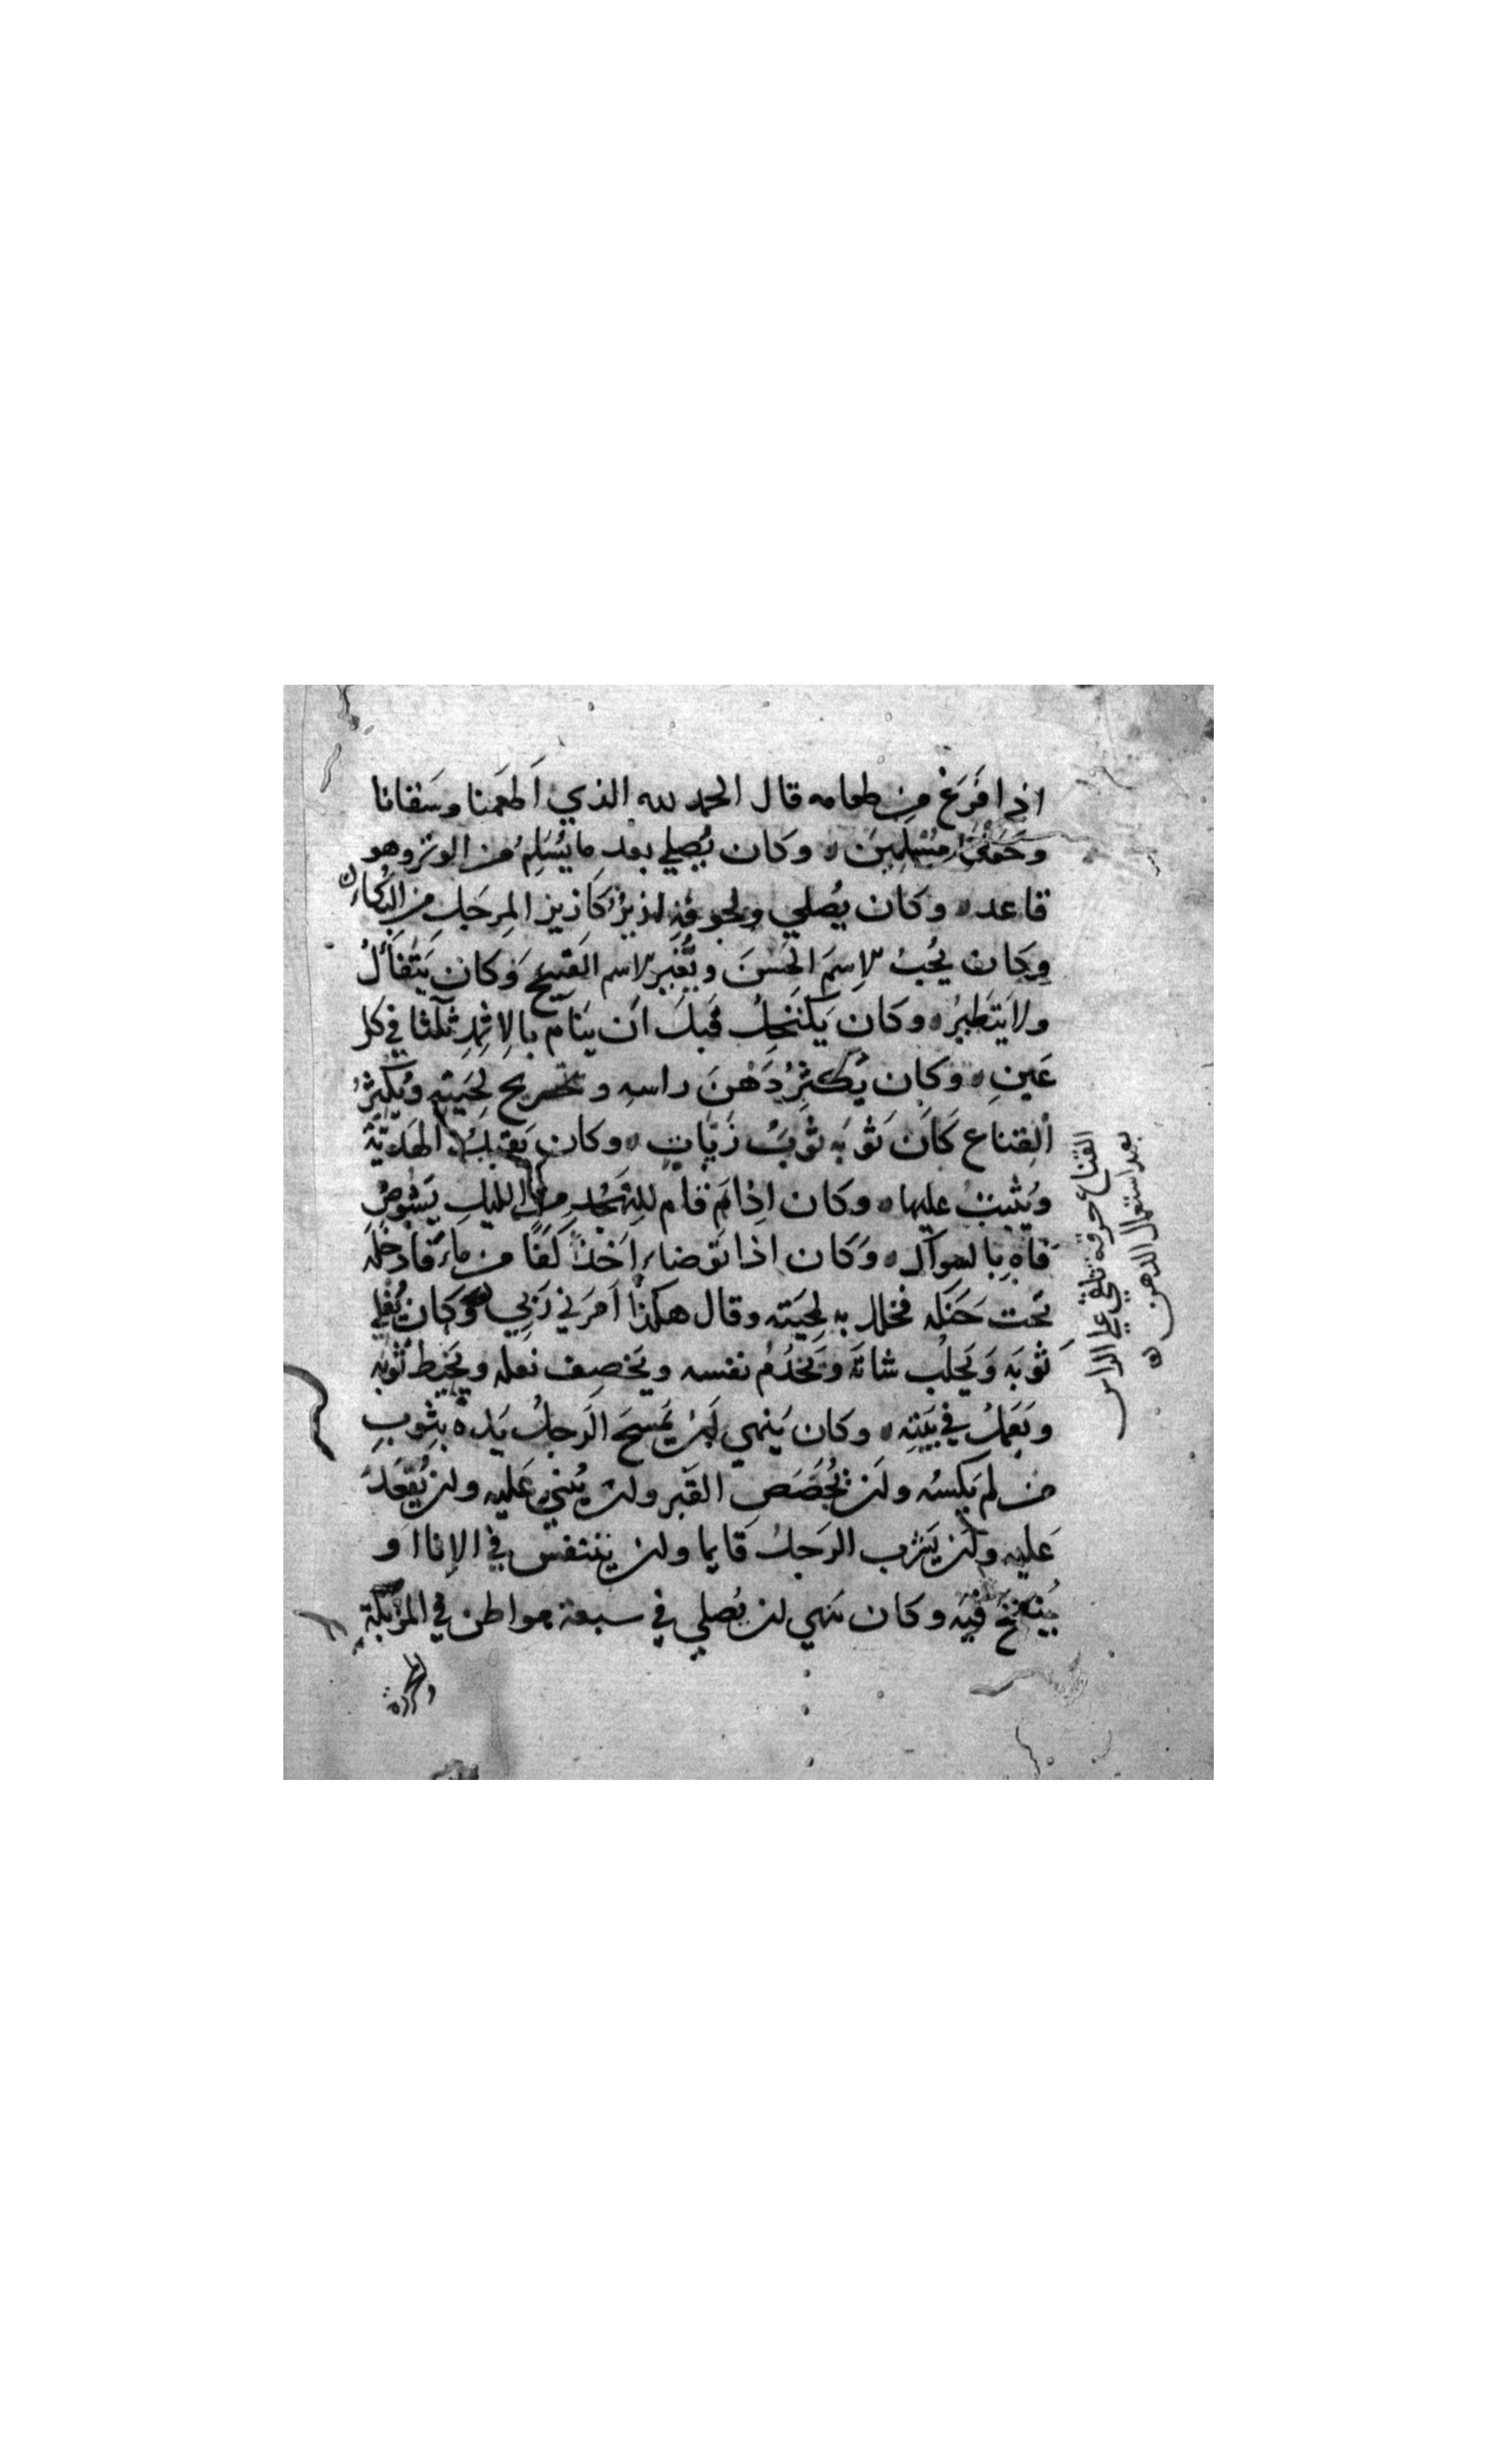 اذا فَرَغ من طعامه قال الحمد لله الذي اَطعَمنا وسَقانا
وجَعَلنا مُسْلِمِينَ ٥ وكان يُصلي بعد ما يُسَلِمُ من الوتر وهو
قاعد ٥ وكان يُصلي ولجوفِهِ ازيزٌ كَازيز المِرجَلِ من البُكاءِ
وكان يُحبُ الاِسمَ الحَسنَ ويُغَيِر الاسم القَبيح وَكان يَتَفأَلُ
ولا يَتَطَيرُ ٥ وكان يَكتَحِلُ قَبلَ اَن يَنام بالاِثمِدِ ثَلثا في كل
عَينِ ٥ وكان يُكثِرُ دَهْنَ راسهِ وتسريح لِحيَتِهِ ويُكثِرُ
اَلقِناع كَاَن ثَوبَه ثَوبُ زَيّاتٍ ٥ وكان يَقبَلُ الهَديَّةَ
ويُثيبُ عليها ٥ وكان اِذا قام للِتَهَجُدِ من الليلِ يَشُوصُ
فَاه بالسواك ٥ وَكان اذا تَوضاء اَخَذَ كَفًا من ماءٍ فادخَلَه
تَحت حَنَكه فخلل به لِحيَته وقال هكذا اَمَرَني رَبي وَكان يُفلي
ثوبَه وَيَحلُب شاتَه وَيَخدُمُ نفسه ويَخصِف نعله ويَخيط ثوبه
ويَعمَلُ في بَيتِه ٥ وكان يَنهي اَن يَمسَحَ الرَجلُ يَدهُ بثوبِ
من لم يَكسُه وان يُجَصَصَ القَبر وان يُبني عَليه وان يُقعَدَ
عَليه وان يَشرب الرَجلُ قَايما وان يتنفس في الانا او
يُنفَخَ فيه وكان نَهي ان يُصلي في سبعة مواطن في المزبَلَة
القناع خرقة تلقي علي الراس
بعد استعمال الدهن